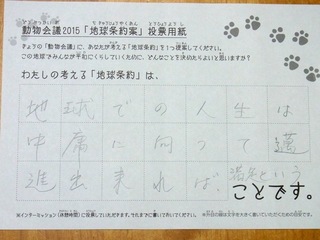 動物会議2015「地球条約案」投票用紙
きょうの「動物会議」に、あなたが考える「地球条約」を1つ提案してください。
この地球でみんなが平和にくらしていくために、どんなことを決めたらよいと思いますか？
わたしの考える「地球条約」は、
地球での人生は
中庸に向って邁
進出来れば、満年という
ことです。
※インターミッション（休憩時間）に投票していただきます。それまでに書いておいてください。